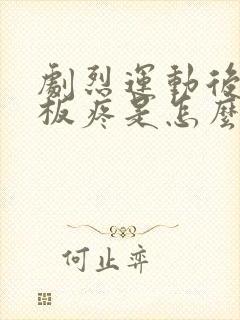 劇烈運動後
板疼是怎麼
何止弈